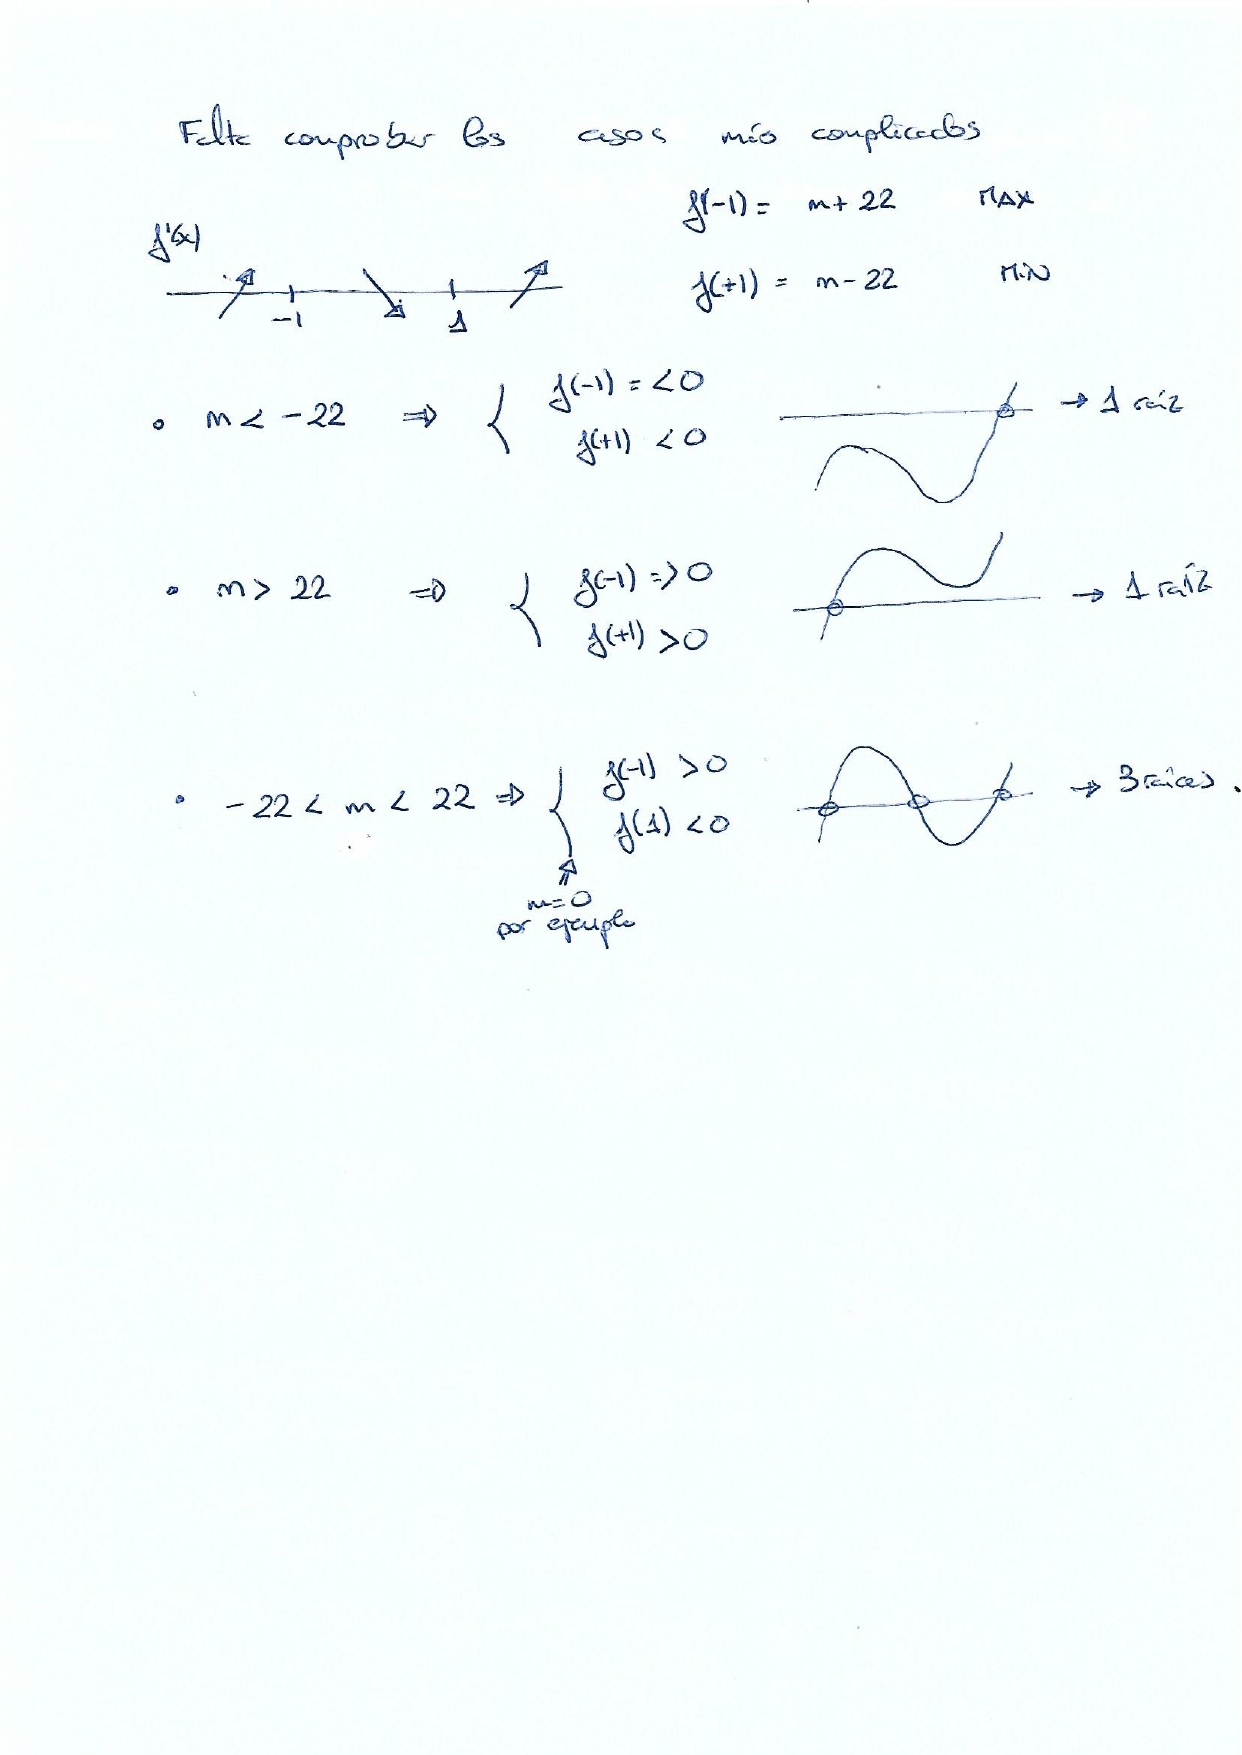 Falta comprobar los casos más complicados
f(-1) = m + 22 MAX
f'(x)
-1 1
f(+1) = m - 22 MIN
• m < -22 ⇒ { f(-1) = <0
f(+1) < 0
→ 1 raíz
• m > 22 ⇒ { f(-1) => 0
f(+1) > 0
→ 1 raíz
• -22 < m < 22 ⇒ { f(-1) > 0
f(1) < 0
→ 3 raíces.
m = 0
por ejemplo